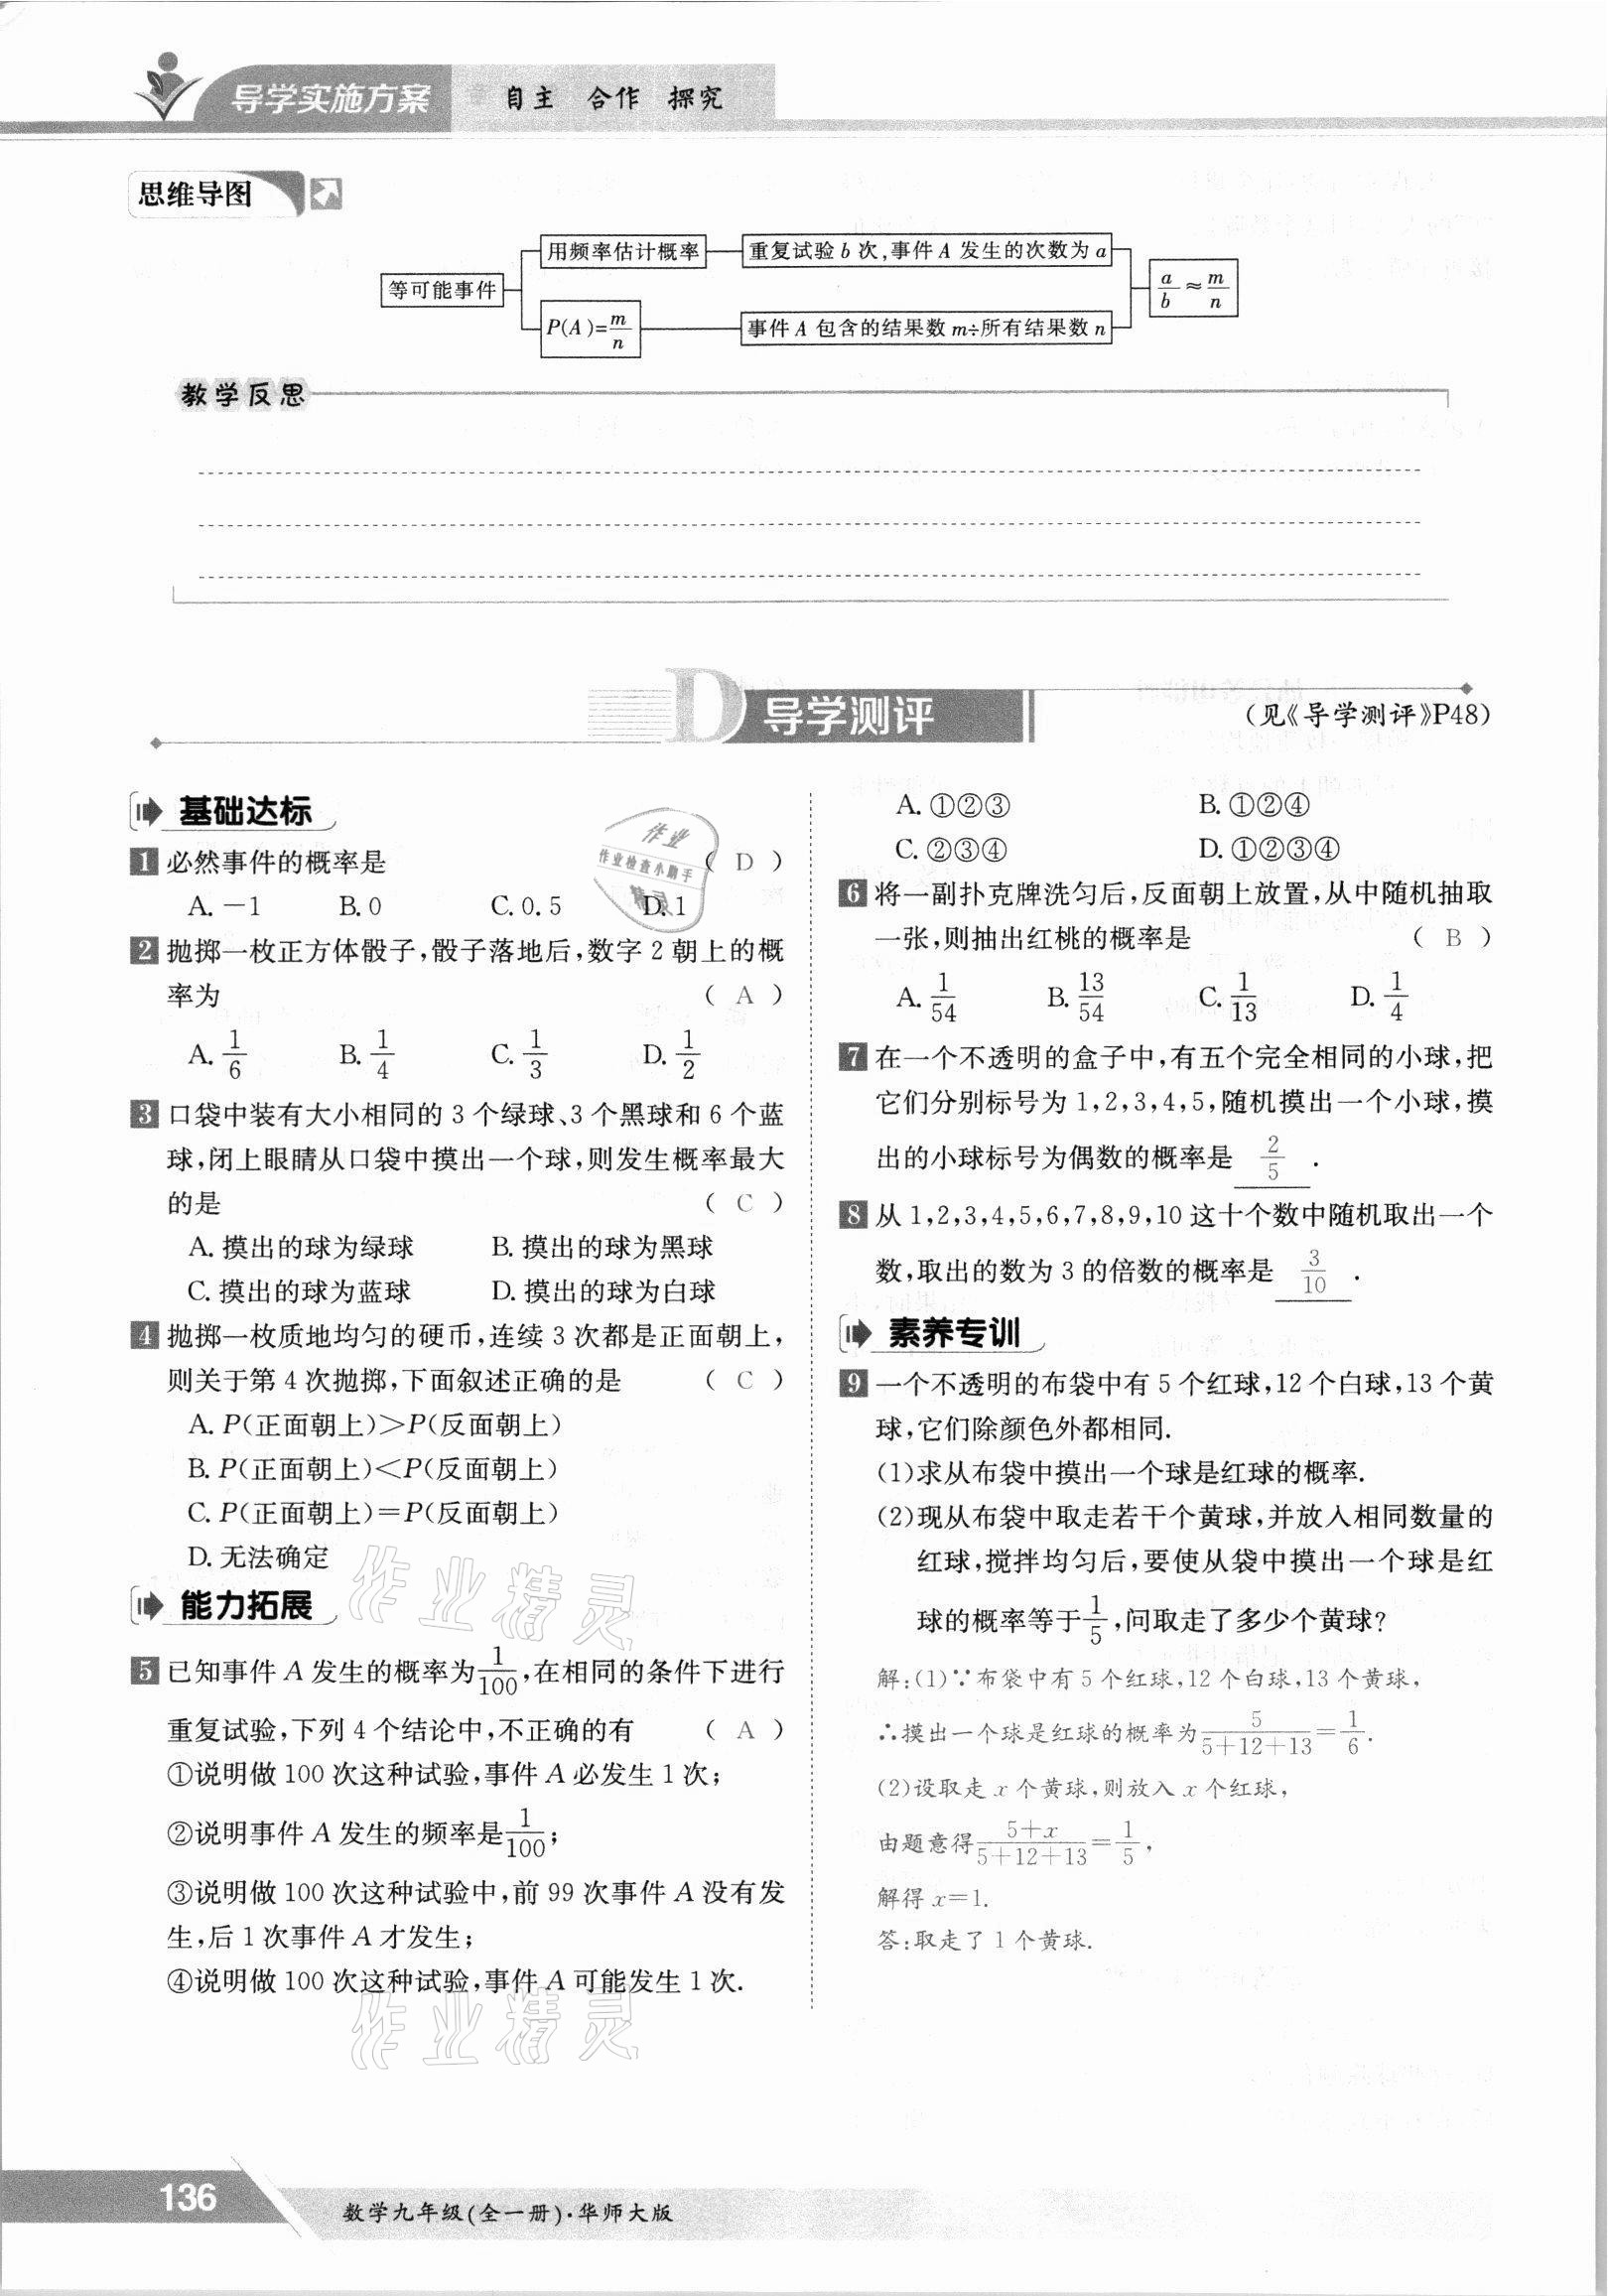 导学实施方案 自主 合作 探究
思维导图
等可能事件
用频率估计概率
重复试验 b 次,事件 A 发生的次数为 a
P(A)=m/n
事件 A 包含的结果数 m÷所有结果数 n
a/b≈m/n
教学反思
D 导学测评
(见《导学测评》P48)
基础达标
1 必然事件的概率是 ( D )
A. －1 B. 0 C. 0.5 D. 1
2 抛掷一枚正方体骰子,骰子落地后,数字 2 朝上的概
率为 ( A )
A. 1/6 B. 1/4 C. 1/3 D. 1/2
3 口袋中装有大小相同的 3 个绿球、3 个黑球和 6 个蓝
球,闭上眼睛从口袋中摸出一个球,则发生概率最大
的是 ( C )
A. 摸出的球为绿球 B. 摸出的球为黑球
C. 摸出的球为蓝球 D. 摸出的球为白球
4 抛掷一枚质地均匀的硬币,连续 3 次都是正面朝上,
则关于第 4 次抛掷,下面叙述正确的是 ( C )
A. P(正面朝上)＞P(反面朝上)
B. P(正面朝上)＜P(反面朝上)
C. P(正面朝上)＝P(反面朝上)
D. 无法确定
能力拓展
5 已知事件 A 发生的概率为1/100,在相同的条件下进行
重复试验,下列 4 个结论中,不正确的有 ( A )
①说明做 100 次这种试验,事件 A 必发生 1 次;
②说明事件 A 发生的频率是1/100;
③说明做 100 次这种试验中,前 99 次事件 A 没有发
生,后 1 次事件 A 才发生;
④说明做 100 次这种试验,事件 A 可能发生 1 次.
A. ①②③ B. ①②④
C. ②③④ D. ①②③④
6 将一副扑克牌洗匀后,反面朝上放置,从中随机抽取
一张,则抽出红桃的概率是 ( B )
A. 1/54 B. 13/54 C. 1/13 D. 1/4
7 在一个不透明的盒子中,有五个完全相同的小球,把
它们分别标号为 1,2,3,4,5,随机摸出一个小球,摸
出的小球标号为偶数的概率是 2/5 .
8 从 1,2,3,4,5,6,7,8,9,10 这十个数中随机取出一个
数,取出的数为 3 的倍数的概率是 3/10 .
素养专训
9 一个不透明的布袋中有 5 个红球,12 个白球,13 个黄
球,它们除颜色外都相同.
(1)求从布袋中摸出一个球是红球的概率.
(2)现从布袋中取走若干个黄球,并放入相同数量的
红球,搅拌均匀后,要使从袋中摸出一个球是红
球的概率等于1/5,问取走了多少个黄球?
解:(1)∵布袋中有 5 个红球,12 个白球,13 个黄球,
∴摸出一个球是红球的概率为5/(5+12+13)=1/6.
(2)设取走 x 个黄球,则放入 x 个红球,
由题意得(5+x)/(5+12+13)=1/5,
解得 x=1.
答:取走了 1 个黄球.
作业
作业检查小助手
精灵
作业精灵
作业精灵
136
数学九年级(全一册)·华师大版